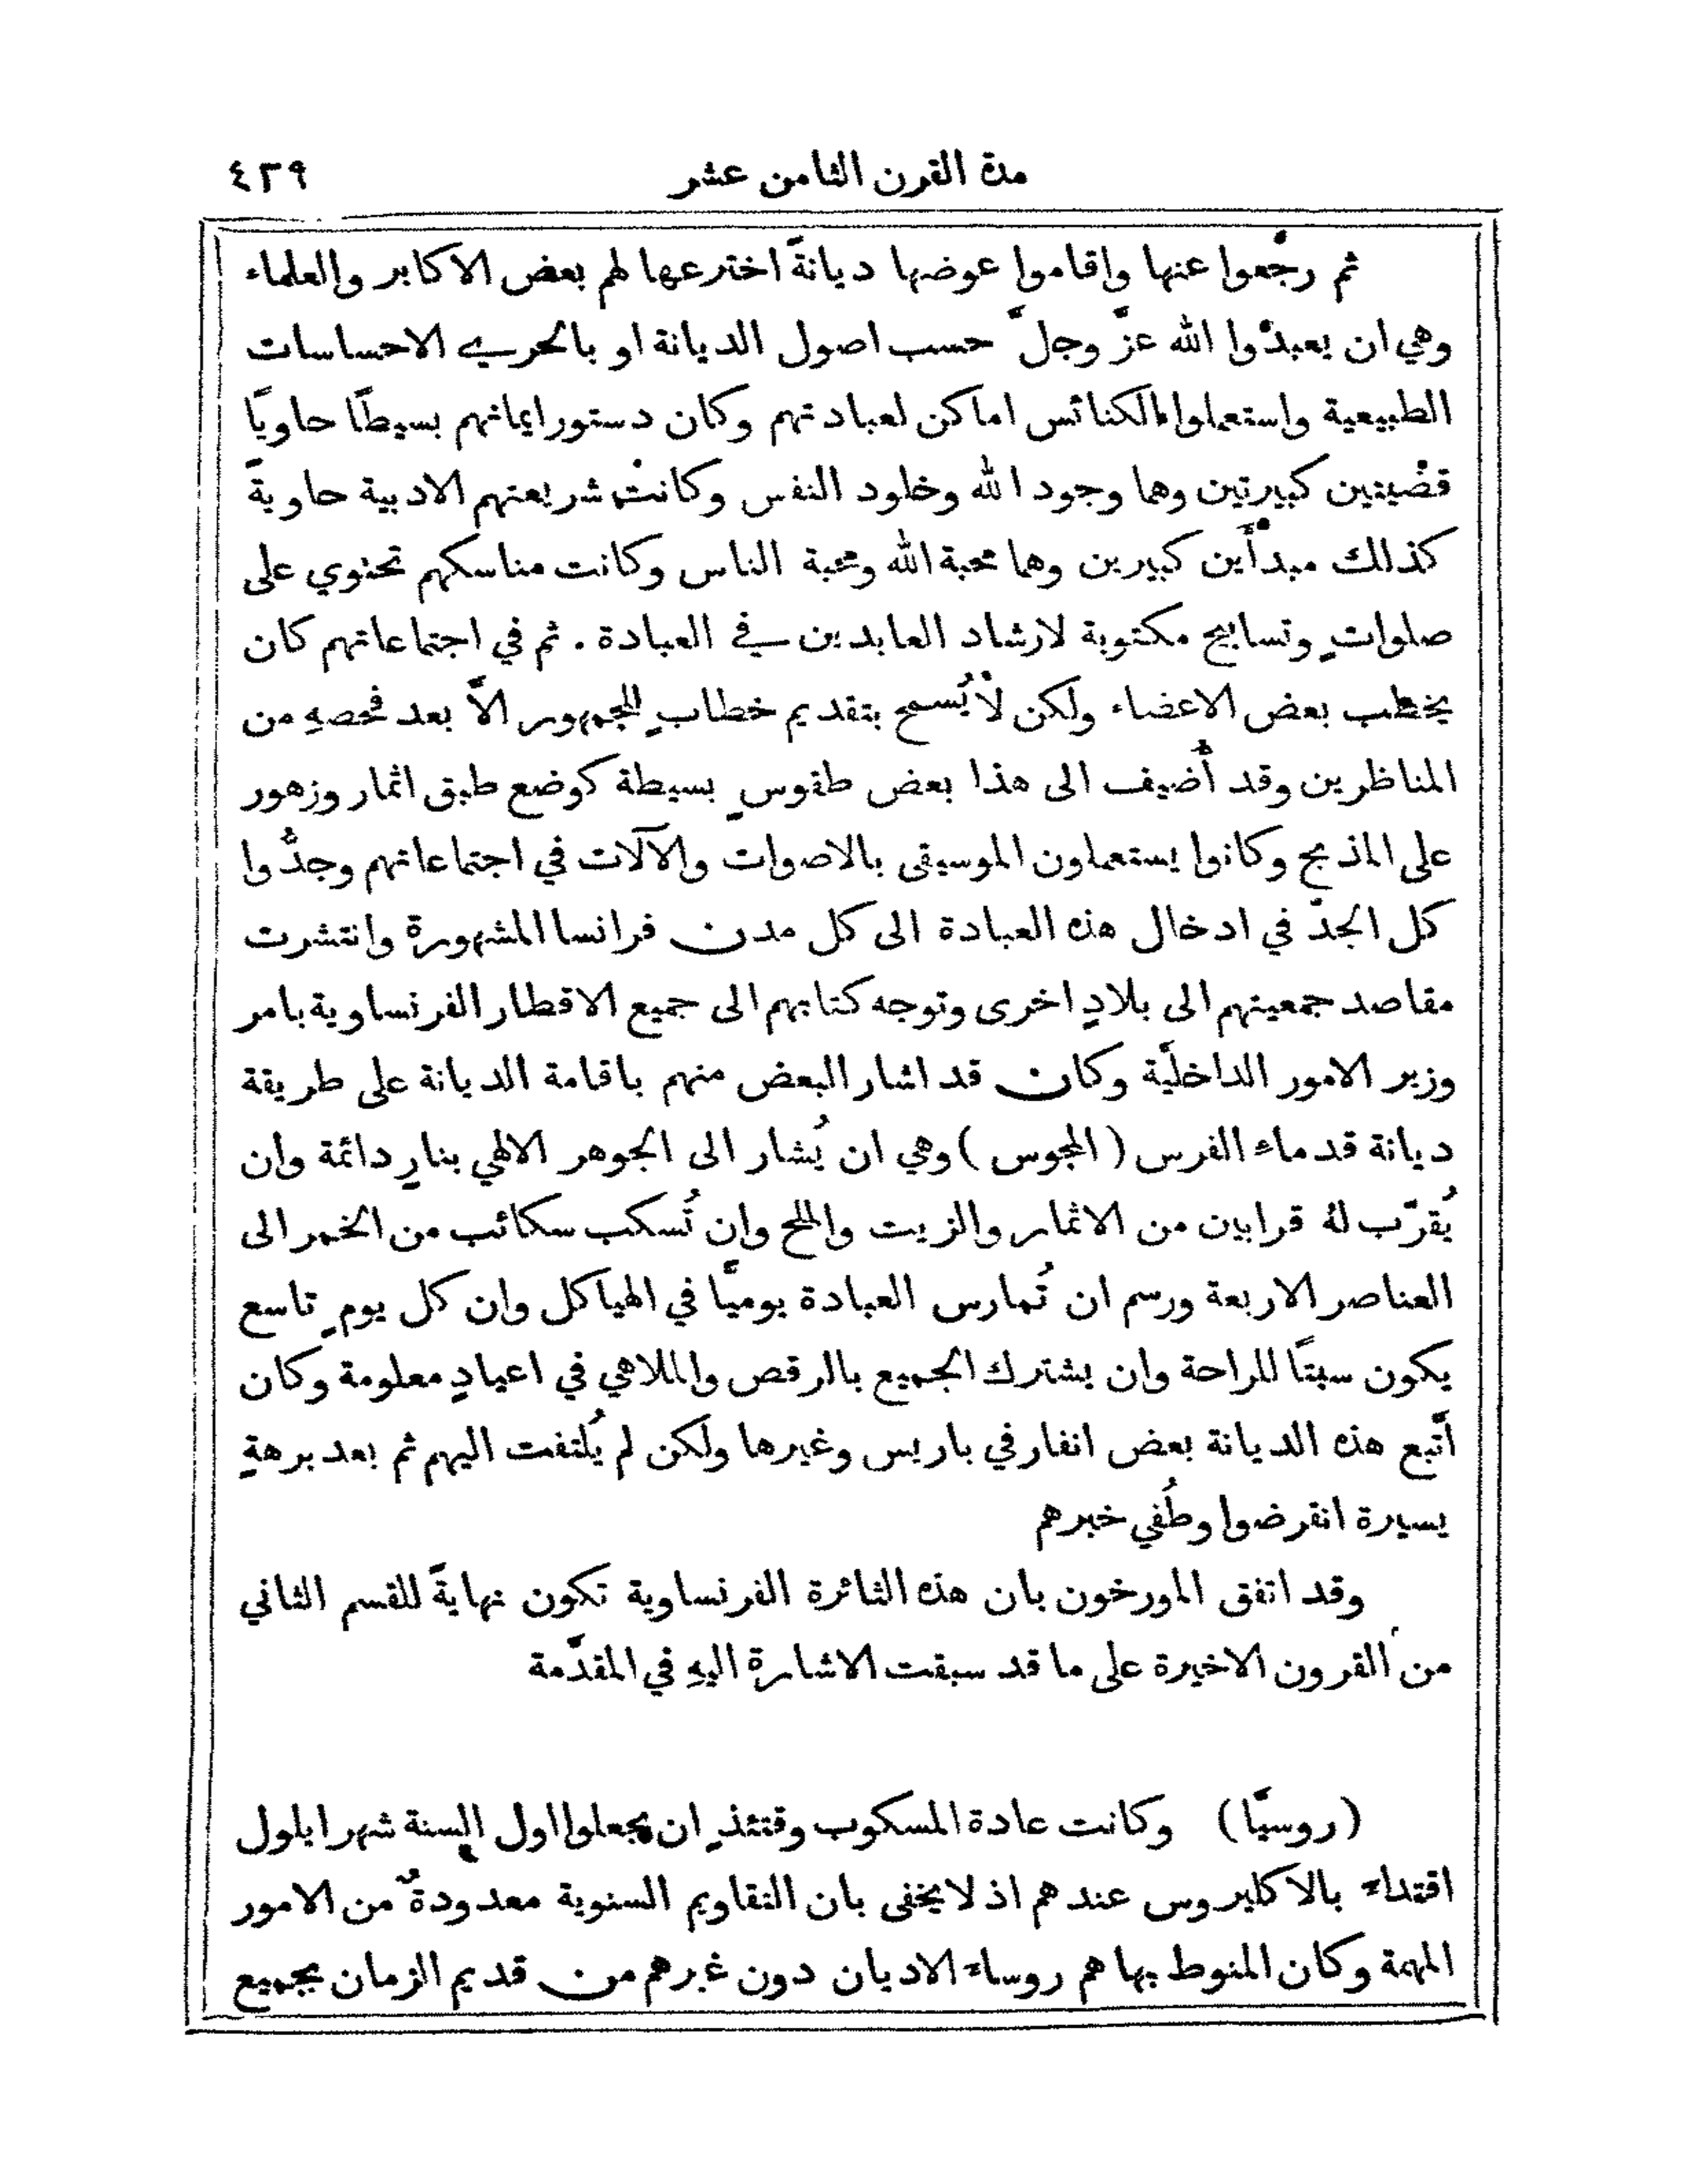 مدة القرن الثامن عشر ٤٣٩
ثم رجعوا عنها واقاموا عوضها ديانةً اخترعها لهم بعض الاكابر والعلماء
وهي ان يعبدوا الله عزّ وجلّ حسب اصول الديانة او بالحري الاحساسات
الطبيعية واستعملوا الكنائس اماكن لعبادتهم وكان دستور ايمانهم بسيطًا حاويًا
قضيتين كبيرتين وهما وجود الله وخلود النفس وكانت شريعتهم الادبية حاويةً
كذلك مبدأَين كبيرين وهما محبة الله ومحبة الناس وكانت مناسكهم تحتوي على
صلواتٍ وتسابيح مكتوبة لارشاد العابدين في العبادة . ثم في اجتماعاتهم كان
يخطب بعض الاعضاء ولكن لا يُسمح بتقديم خطابٍ للجمهور الاَّ بعد فحصهِ من
المناظرين وقد أُضيف الى هذا بعض طقوسٍ بسيطة كوضع طبق اثمار وزهور
على المذبح وكانوا يستعملون الموسيقى بالاصوات والآلات في اجتماعاتهم وجدُّوا
كل الجدّ في ادخال هذه العبادة الى كل مدن فرانسا المشهورة وانتشرت
مقاصد جمعيتهم الى بلادٍ اخرى وتوجه كتابهم الى جميع الاقطار الفرنساوية بامر
وزير الامور الداخليَّة وكان قد اشار البعض منهم باقامة الديانة على طريقة
ديانة قدماء الفرس (المجوس) وهي ان يُشار الى الجوهر الالهي بنارٍ دائمة وان
يُقرّب لهُ قرابين من الاثمار والزيت والملح وان تُسكب سكائب من الخمر الى
العناصر الاربعة ورسم ان تُمارس العبادة يوميًّا في الهياكل وان كل يومٍ تاسع
يكون سبتًا للراحة وان يشترك الجميع بالرقص والملاهي في اعيادٍ معلومة وكان
اتَّبع هذه الديانة بعض انفار في باريس وغيرها ولكن لم يُلتفت اليهم ثم بعد برهةٍ
يسيرة انقرضوا وطُفي خبرهم
وقد اتفق المورخون بان هذه الثائرة الفرنساوية تكون نهايةً للقسم الثاني
من القرون الاخيرة على ما قد سبقت الاشارة اليهِ في المقدَّمة
(روسيَّا) وكانت عادة المسكوب وقتئذٍ ان يجعلوا اول السنة شهر ايلول
اقتداءً بالاكليروس عندهم اذ لا يخفى بان التقاويم السنوية معدودةٌ من الامور
المهمة وكان المنوط بها هم روساء الاديان دون غيرهم من قديم الزمان بجميع